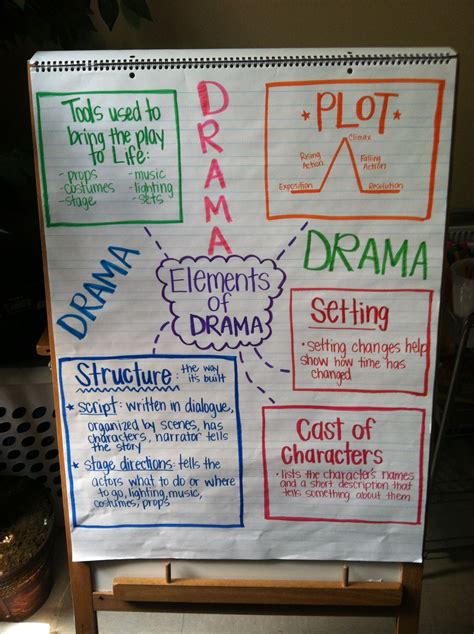 DRAMA
Tools used to
bring the play
to Life:
-props
-music
-costumes
-lighting
-stage
-sets
-PLOT-
Climax
Rising
Action
Falling
Action
Exposition
Resolution
DRAMA
DRAMA
Elements
of
DRAMA
Setting
• setting changes help
show how time has
changed
Structure: the way
it's built
★ script: written in dialogue,
organized by scenes, has
characters, narrator tells
the story
★ stage directions: tells the
actors what to do or where
to go, lighting, music,
costumes, props
Cast of
Characters
• lists the character's names
and a short description that
tells something about them